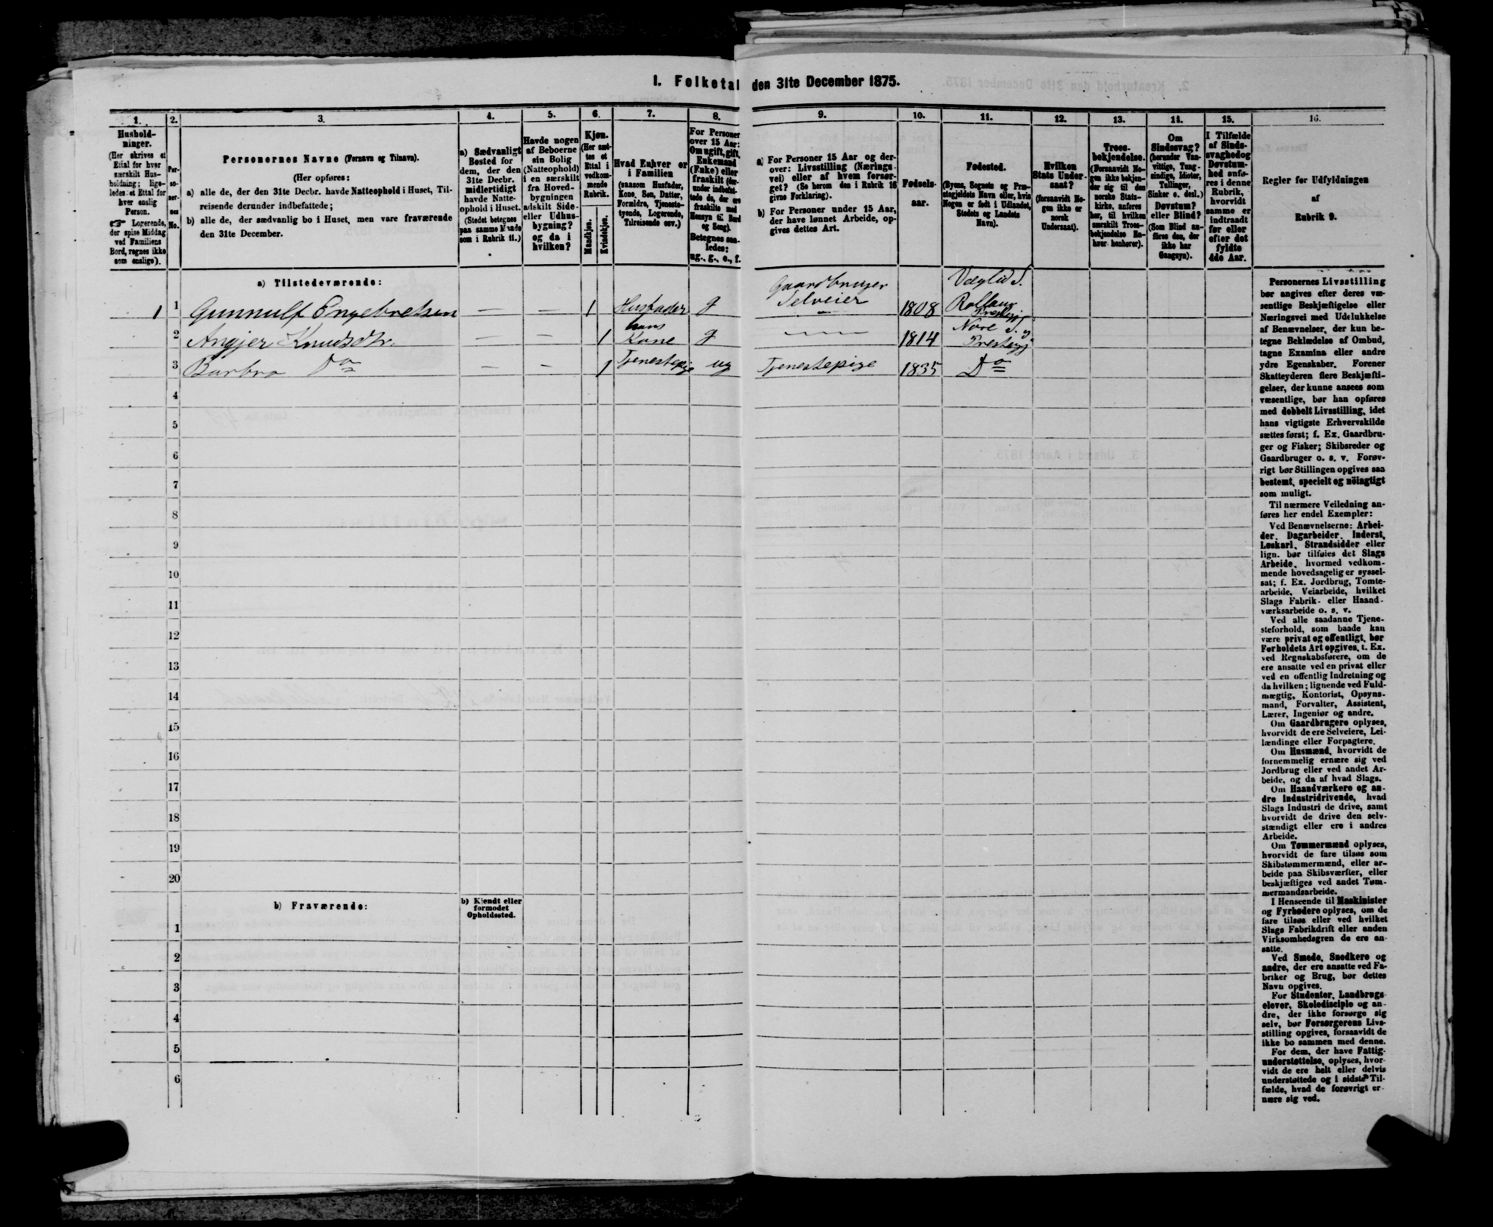 I. Folketal den 31te December 1875.
1.
2.
3.
4.
5.
6.
7.
8.
9.
10.
11.
12.
13.
14.
15.
16.
Hushold-
ninger.
(Her skrives et
Ettal for hver
særskilt Hus-
holdning; lige-
ledes et Ettal for
hver enslig
Person.
☞ Logerende,
der spise Middag
ved Familiens
Bord, regnes ikke
som enslige).
Per-
so-
ner-
nes
No.
Personernes Navne (Fornavn og Tilnavn).
(Her opføres:
a) alle de, der den 31te Decbr. havde Natteophold i Huset, Til-
reisende derunder indbefattede;
b) alle de, der sædvanlig bo i Huset, men vare fraværende
den 31te December.
a) Sædvanligt
Bosted for
dem, der den
31te Decbr.
midlertidigt
havde Natte-
ophold i Huset.
(Stedet betegnes
paa samme Maade
som i Rubrik 11.)
Havde nogen
af Beboerne
sin Bolig
(Natteophold)
i en særskilt
fra Hoved-
bygningen
adskilt Side-
eller Udhus-
bygning?
og da i
hvilken?
Kjøn.
(Her sæt-
tes et
Ettal i
vedkom-
mende
Rubrik.
Mandkjøn.
Kvindekjøn.
Hvad Enhver er
i Familien
(saasom Husfader,
Kone, Søn, Datter,
Forældre, Tjeneste-
tyende, Logerende,
Tilreisende osv.)
For Personer
over 15 Aar:
Om ugift, gift,
Enkemand
(Enke) eller
fraskilt
Betegnes saa-
ledes:
ug., g., e., f.
a) For Personer 15 Aar og der-
over: Livsstilling (Nærings-
vei) eller af hvem forsør-
get? (Se herom den i Rubrik 16
givne Forklaring).
b) For Personer under 15 Aar,
der have lønnet Arbeide, op-
gives dettes Art.
Fødsels-
aar.
Fødested.
(Byens, Sognets og Præ-
stegjeldets Navn eller, hvis
Nogen er født i Udlandet,
Stedets og Landets
Navn).
Hvilken
Stats Under-
saat?
(forsaavidt No-
gen ikke er
norsk
Undersaat).
Troes-
bekjendelse.
(Forsaavidt No-
gen ikke bekjen-
der sig til den
norske Stats-
kirke, anføres
her, til hvilken
særskilt Troes-
bekjendelse En-
hver henhører).
Om
Sindssvag?
(herunder Van-
vittige, Tung-
sindige, Idioter,
Tullinger,
Sinker o. desl.)
Døvstum?
eller Blind?
(Som Blind an-
føres den, der
ikke har
Gangsyn).
I Tilfælde
af Sinds-
svaghed og
Døvstum-
hed anfø-
res i denne
Rubrik,
hvorvidt
samme er
indtraadt
før eller
efter det
fyldte
4de Aar.
Regler for Udfyldningen
af
Rubrik 9.
a) Tilstedeværende:
1 1 Gunnulf Engebretsen — — 1 Husfader g Gaardbruger Selveier 1808 Rollaug Prestegj
2 Angjer Knudsdtr. — — 1 hans Kone g 1814 Nore S. Prestegj
3 Barbro Do — — 1 Tjenestepige ug Tjenestepige 1835 Do
4
5
6
7
8
9
10
11
12
13
14
15
16
17
18
19
20
b) Fraværende:
b) Kjendt eller
formodet
Opholdssted.
1
2
3
4
5
6
Personernes Livsstilling
bør angives efter deres væ-
sentlige Beskjæftigelse eller
Næringsvei med Udelukkelse
af Benævnelser, der kun be-
tegne Beklædelse af Ombud,
tagne Examina eller andre
ydre Egenskaber. Forener
Skatteyderen flere Beskjæfti-
gelser, der kunne ansees som
væsentlige, bør han opføres
med dobbelt Livsstilling, idet
hans vigtigste Erhvervskilde
sættes først; f. Ex. Gaardbru-
ger og Fisker; Skibsreder og
Gaardbruger o. s. v. Forøv-
rigt bør Stillingen opgives saa
bestemt, specielt og nöiagtigt
som muligt.
Til nærmere Veiledning an-
føres her endel Exempler:
Ved Benævnelserne: Arbei-
der, Dagarbeider, Inderst,
Løskarl, Strandsidder eller
lign. bør tilføies det Slags
Arbeide, hvormed vedkom-
mende hovedsagelig er syssel-
sat; f. Ex. Jordbrug, Tomte-
arbeide, Veiarbeide, hvilket
Slags Fabrik- eller Haand-
værksarbeide o. s. v.
Ved alle saadanne Tjene-
steforhold, som baade kan
være privat og offentligt, bør
Forholdets Art opgives, t. Ex.
ved Regnskabsførere, om de
ere ansatte ved en privat eller
ved en offentlig Indretning og
da hvilken; lignende ved Fuld-
mægtig, Kontorist, Opsyns-
mand, Forvalter, Assistent,
Lærer, Ingeniør og andre.
Om Gaardbrugere oplyses,
hvorvidt de ere Selveiere, Lei-
lændinge eller Forpagtere.
Om Husmænd, hvorvidt de
fornemmelig ernære sig ved
Jordbrug eller ved andet Ar-
beide, og da af hvad Slags.
Om Haandværkere og an-
dre Industridrivende, hvad
Slags Industri de drive, samt
hvorvidt de drive den selv-
stændigt eller ere i andres
Arbeide.
Om Tømmermænd oplyses,
hvorvidt de fare tilsøs som
Skibstømmermænd, eller ar-
beide paa Skibsværfter, eller
beskjæftiges ved andet Tøm-
mermandsarbeide.
I Henseende til Maskinister
og Fyrbødere oplyses, om de
fare tilsøs eller ved hvilket
Slags Fabrikdrift eller anden
Virksomhedsgren de ere an-
satte.
Ved Smede, Snedkere og
andre, der ere ansatte ved Fa-
briker og Brug, bør dettes
Navn opgives.
For Studenter, Landbrugs-
elever, Skoledisciple og an-
dre, der ikke forsørge sig
selv, bør Forsørgerens Livs-
stilling opgives, forsaavidt de
ikke bo sammen med denne.
For dem, der have Fattig-
understøttelse, oplyses, hvor-
vidt de ere helt eller delvis
understøttede og i sidste Til-
fælde, hvad de forøvrigt er-
nære sig ved.